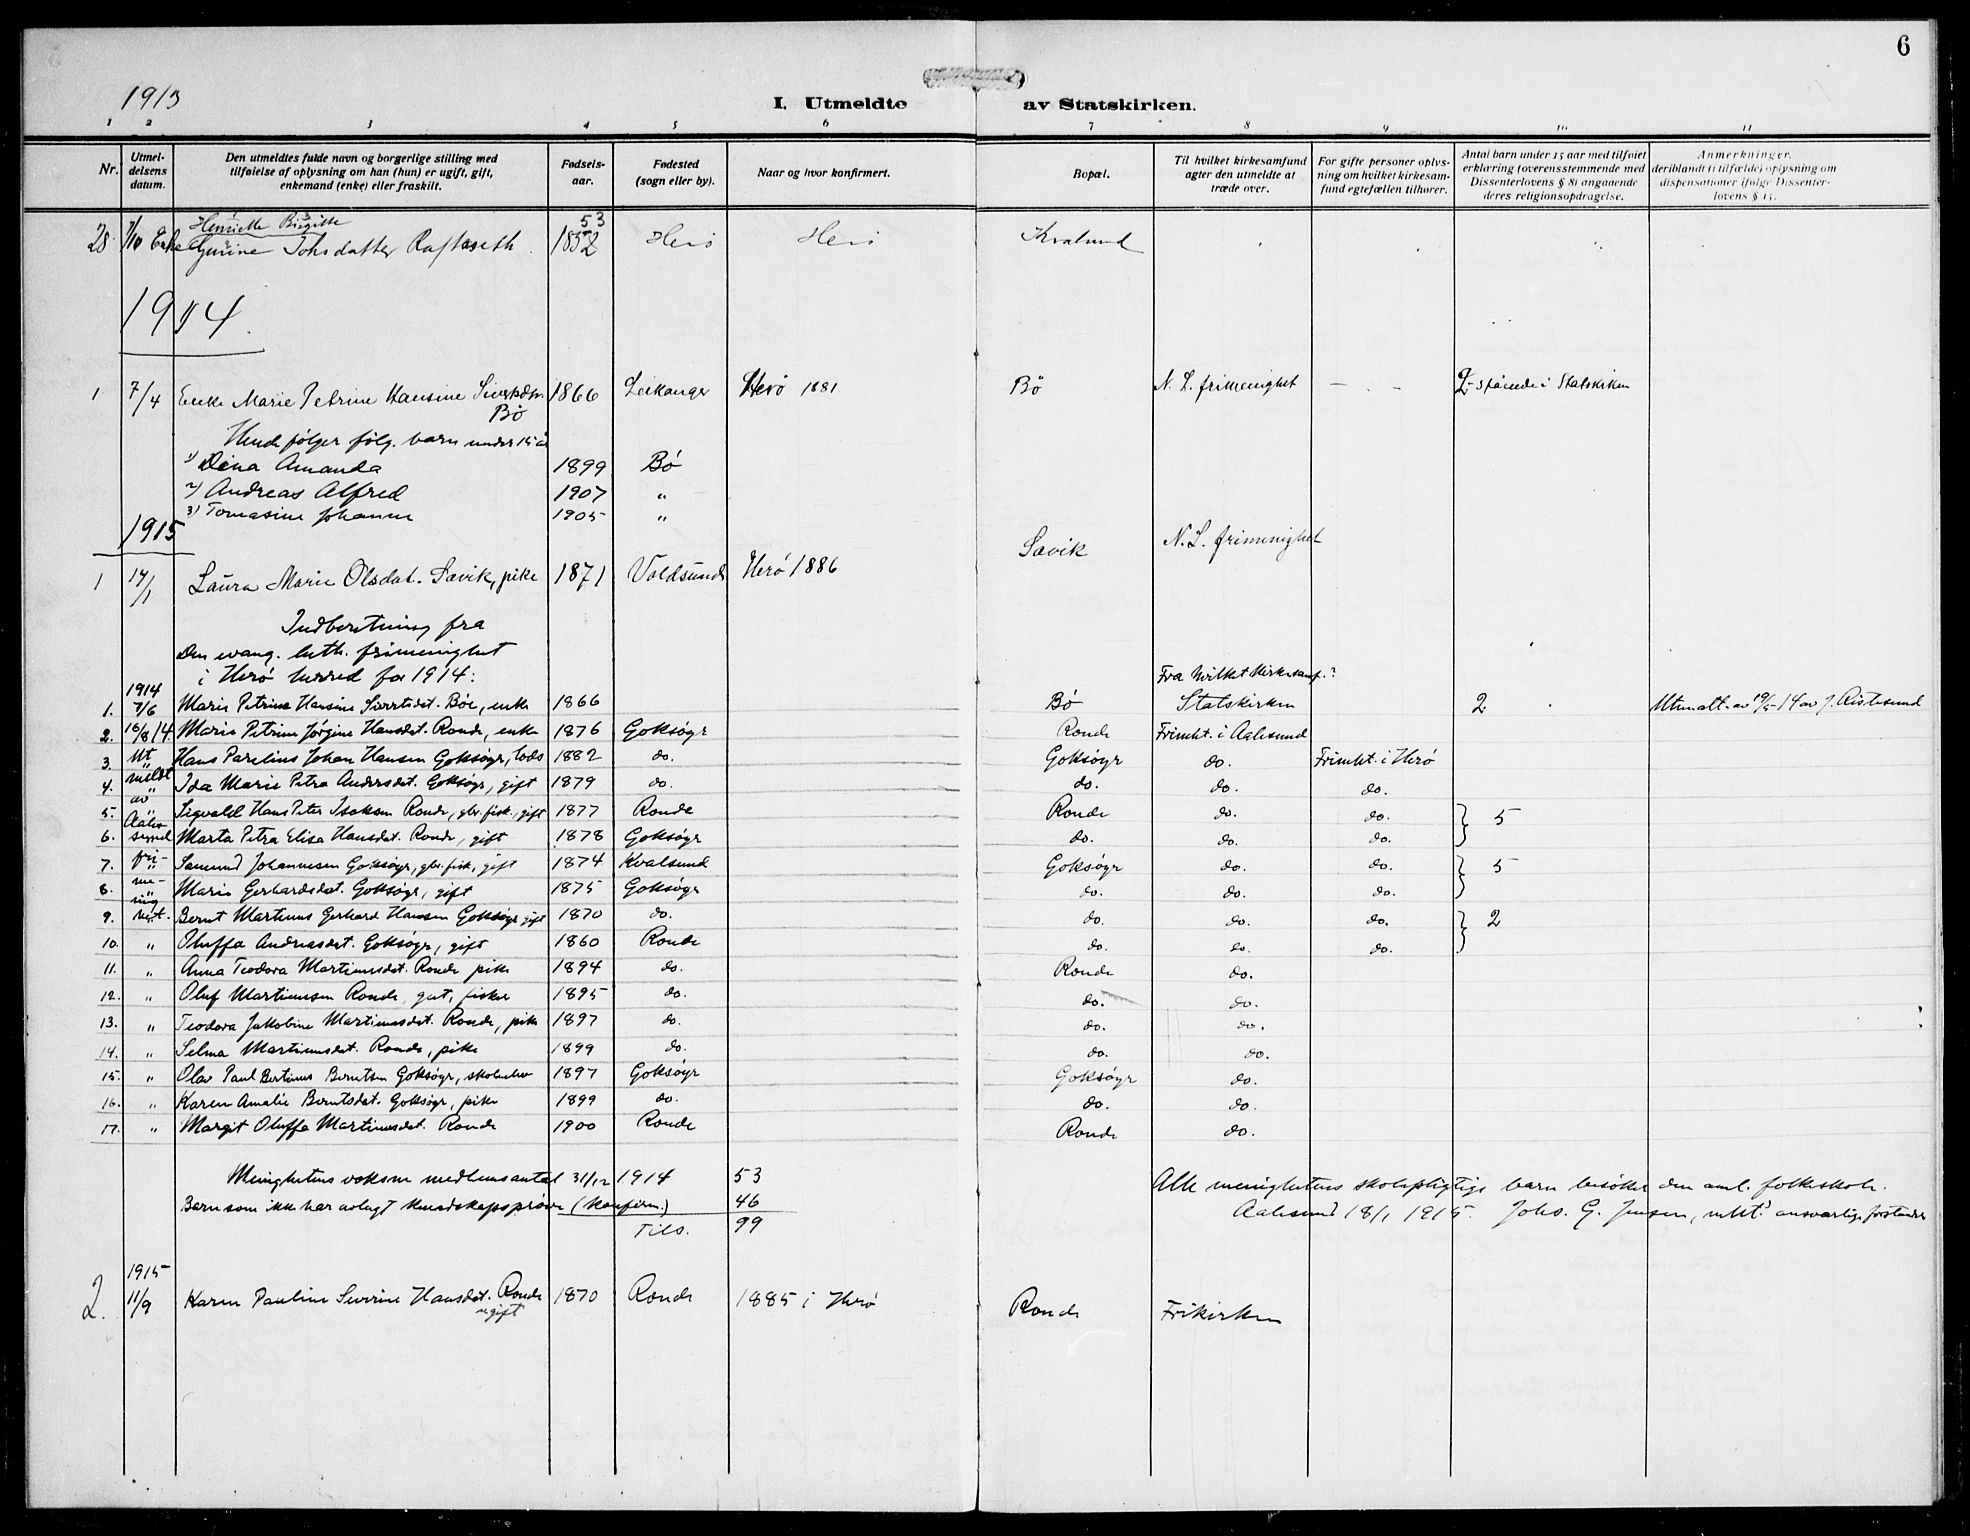 6
1913
I. Utmeldte av Statskirken.
1 2 3 4 5 6 7 8 9 10 11
Nr. | Utmeldelsens datum. | Den utmeldtes fulde navn og borgerlige stilling med tilføielse af oplysning om han (hun) er ugift, gift, enkemand (enke) eller fraskilt. | Fødselsaar. | Fødested (sogn eller by). | Naar og hvor konfirmert. | Bopæl. | Til hvilket kirkesamfund agter den utmeldte at træde over. | For gifte personer oplysning om hvilket kirkesamfund egtefællen tilhører. | Antal barn under 15 aar med tilføiet erklæring (overensstemmende med Dissenterlovens § 8) angaaende deres religionsopdragelse. | Anmerkninger, deriblandt (i tilfælde) oplysning om dispensationer ifølge Dissenterlovens § 15.
Henriette Birgitte 53
28 7/10 Enke Gurine Johsdatter Rafteseth 1852 Herö Herö Kvalsund
1914
1 7/4 Enke Marie Petrine Hansine Sivertsdtr. 1866 Leikanger Herö 1881 Bö N. L. frimenighet — 2 - stående i Statskirken
Bö
Hende følger følg. barn under 15 år
1) Dina Amanda 1899 Bö
2) Andreas Alfred 1907 "
3) Tomasine Johanne 1905 "
1915
1 14/1 Laura Marie Olsdat. Sævik, pike 1871 Voldsund Herö 1886 Sævik N. L. frimenighet
Indberetning fra
Den evang. luth. frimenighet
i Herö herred for 1914:
Fra hvilket Kirkesamf.?
1914
1. 7/6 Marie Petrine Hansine Sivertsdat. Böe, enke 1866 Bö Statskirken 2 Utmeldt. av 19/5 14 av J. Ristesund
2. 16/8 14. Marie Petrine Jörgine Hansdat. Ronde, enke 1876 Goksöyr Ronde Frimht. i Aalesund
3. Ut Hans Parelius Johan Hansen Goksöyr, lods 1882 do. Goksöyr do. Frimht. i Herö
4. meldt Ida Marie Petra Andersdat. Goksöyr, gift 1879 do. do. do. do.
5. av Sigvald Hans Peter Isaksen Ronde, gbr. fisk., gift 1877 Ronde Ronde do. do. } 5
6. Aalesund Marta Petra Elisa Hansdat. Ronde, gift 1878 Goksöyr do. do. do.
7. fri- Samund Johannesen Goksöyr, gbr. fisk, gift 1874 Kvalsund Goksöyr do. do. } 5
8. me- Marie Gerhardsdat. Goksöyr, gift 1875 Goksöyr do. do. do.
9. nighet. Bernt Martinus Gerhard Hansen Goksöyr gift 1870 do. do. do. do. } 2
10. " Oluffa Andreasdat. Goksöyr, gift 1860 Ronde do. do. do.
11. " Anna Teodora Martinusdat. Ronde pike 1894 do. Ronde do.
12. " Oluf Martinusen Ronde, gut, fisker 1895 do. do. do.
13. " Teodora Jakobine Martinusdat. Ronde, pike 1897 do. do. do.
14. " Selma Martinusdat. Ronde, pike 1899 do. do. do.
15. " Olav Paul Bertinus Berntsen Goksöyr, skoleelev 1897 Goksöyr Goksöyr do.
16. " Karen Amalie Berntsdat. Goksöyr, pike 1899 do. do. do.
17. " Margit Oluffa Martinusdat. Ronde 1900 Ronde Ronde do.
Menighetens voksne medlemsantal 31/12 1914 53
Barn som ikke har avlagt kundskapsprøve (Konfirm.) 46
Tils. 99
Alle menighetens skolepligtige barn besöker den aml. folkeskole.
Aalesund 18/1 1915. Johs. G. Jensen, mht.s ansvarlige forstander
1915
2. 11/9 Karen Pauline Severine Hansdat. Ronde 1870 Ronde 1885 i Herö Ronde Frikirken
ugift